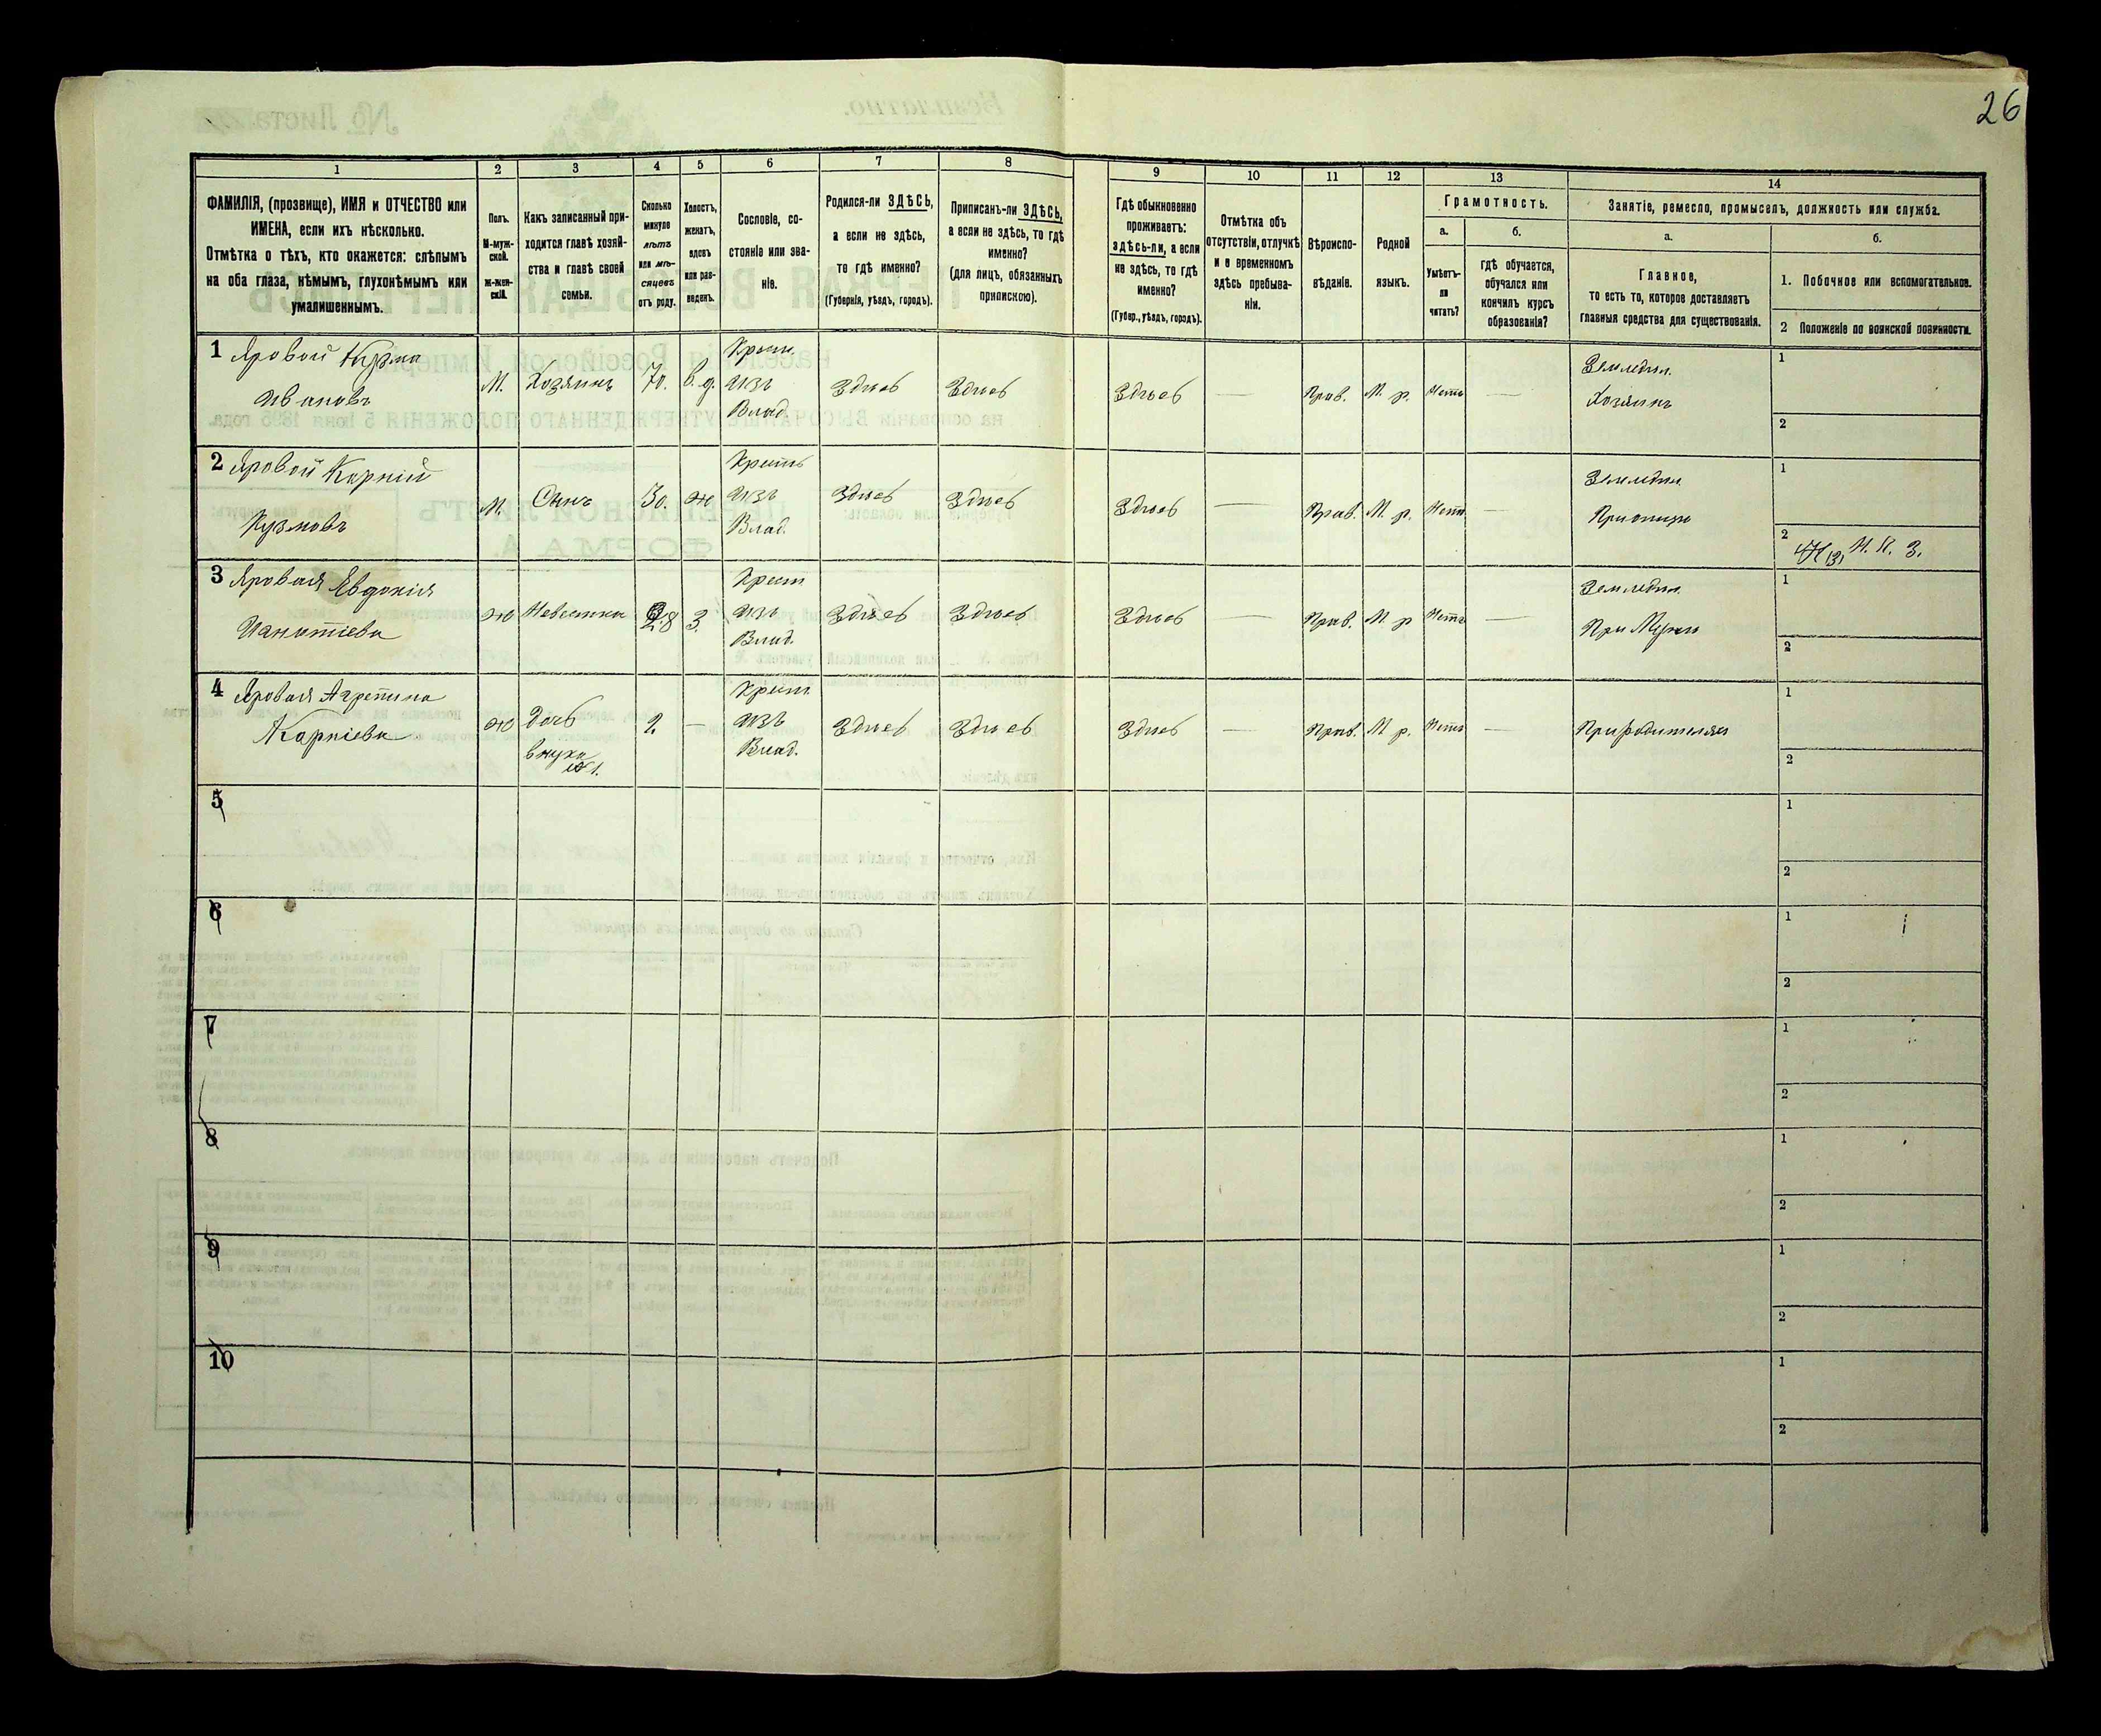 26
1
2
3
4
5
6
7
8
9
10
11
12
13
14
ФАМИЛІЯ, (прозвище), ИМЯ и ОТЧЕСТВО или
ИМЕНА, если ихъ нѣсколько.
Отмѣтка о тѣхъ, кто окажется: слѣпымъ
на оба глаза, нѣмымъ, глухонѣмымъ или
умалишеннымъ.
Полъ.
М-муж-
ской.
Ж-жен-
скій.
Какъ записанный при-
ходится главѣ хозяй-
ства и главѣ своей
семьи.
Сколько
минуло
лѣтъ
или мѣ-
сяцевъ
отъ роду.
Холостъ,
женатъ,
вдовъ
или раз-
веденъ.
Сословіе, со-
стояніе или зва-
ніе.
Родился-ли ЗДѢСЬ,
а если не здѣсь,
то гдѣ именно?
(Губернія, уѣздъ, городъ).
Приписанъ-ли ЗДѢСЬ,
а если не здѣсь, то гдѣ
именно?
(для лицъ, обязанныхъ
припискою).
Гдѣ обыкновенно
проживаетъ:
здѣсь-ли, а если
не здѣсь, то гдѣ
именно?
(Губер., уѣздъ, городъ).
Отмѣтка объ
отсутствіи, отлучкѣ
и о временномъ
здѣсь пребыва-
ніи.
Вѣроиспо-
вѣданіе.
Родной
языкъ.
Грамотность.
а.
Умѣетъ-
ли
читать?
б.
гдѣ обучается,
обучался или
кончилъ курсъ
образованія?
Занятіе, ремесло, промыселъ, должность или служба.
а.
Главное,
то есть то, которое доставляетъ
главныя средства для существованія.
б.
1. Побочное или вспомогательное.
2 Положеніе по воинской повинности.
1 Яровой Кузма
Ивановъ
М. Хозяинъ 70. в. д.
Крест.
изъ
Влад.
Здѣсь Здѣсь Здѣсь — Прав. М. р. Нетъ —
Земледѣл.
Хозяинъ
1
2
2 Яровой Карній
Кузмовъ
М. Сынъ 30. ж
Крестъ
изъ
Влад.
Здѣсь Здѣсь Здѣсь — Прав. М. р. Нетъ —
Земледѣл.
При отцѣ
1
2
Н. К. З.
3 Яровая Евдокія
Игнатіева
ж Невестка 28 З.
Крест
изъ
Влад.
Здѣсь Здѣсь Здѣсь — Прав. М. р Нетъ —
Земледѣл.
При Мужѣ
1
2
4 Яровая Агрепина
Карніева
ж Дочь
внука
1.
2. —
Крест
изъ
Влад.
Здѣсь Здѣсь Здѣсь — Прав. М р. Нетъ —
При родителях
1
2
5
1
2
6
1
2
7
1
2
8
1
2
9
1
2
10
1
2